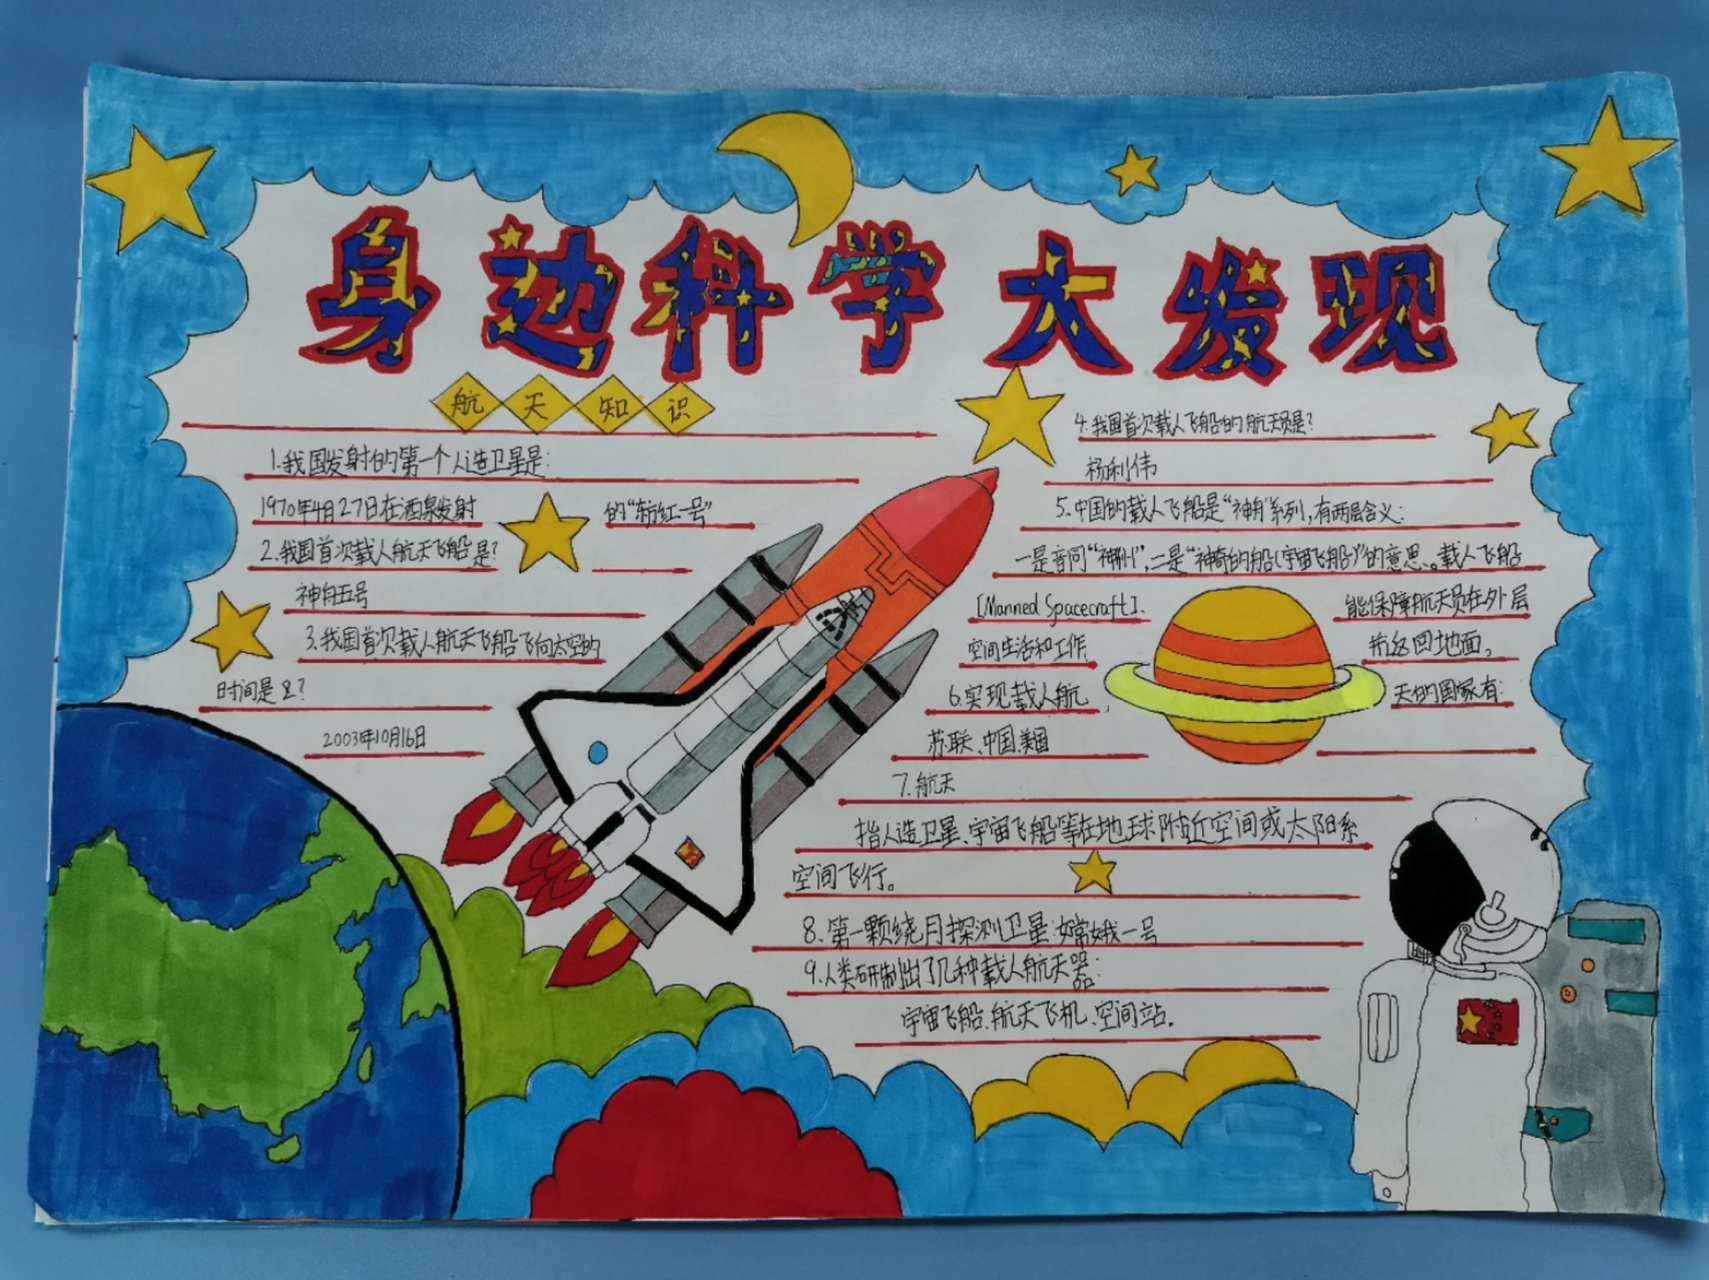 身边科学大发现
航天知识
1.我国发射的第一个人造卫星是:
1970年4月27日在酒泉发射 的“东方红一号”
2.我国首次载人航天飞船是?
神舟五号
3.我国首次载人航天飞船飞向太空的
时间是?
2003年10月16日
4.我国首次载人飞船的航天员是?
杨利伟
5.中国的载人飞船是“神舟”系列,有两层含义:
一是音同“神州”,二是“神奇的船(宇宙飞船)”的意思。载人飞船
[Manned Spacecraft]. 能保障航天员在外层
空间生活和工作 并返回地面。
6.实现载人航 天的国家有:
苏联、中国、美国
7.航天
指人造卫星、宇宙飞船等在地球附近空间或太阳系
空间飞行。
8.第一颗绕月探测卫星:嫦娥一号
9.人类研制出了几种载人航天器:
宇宙飞船、航天飞机、空间站.